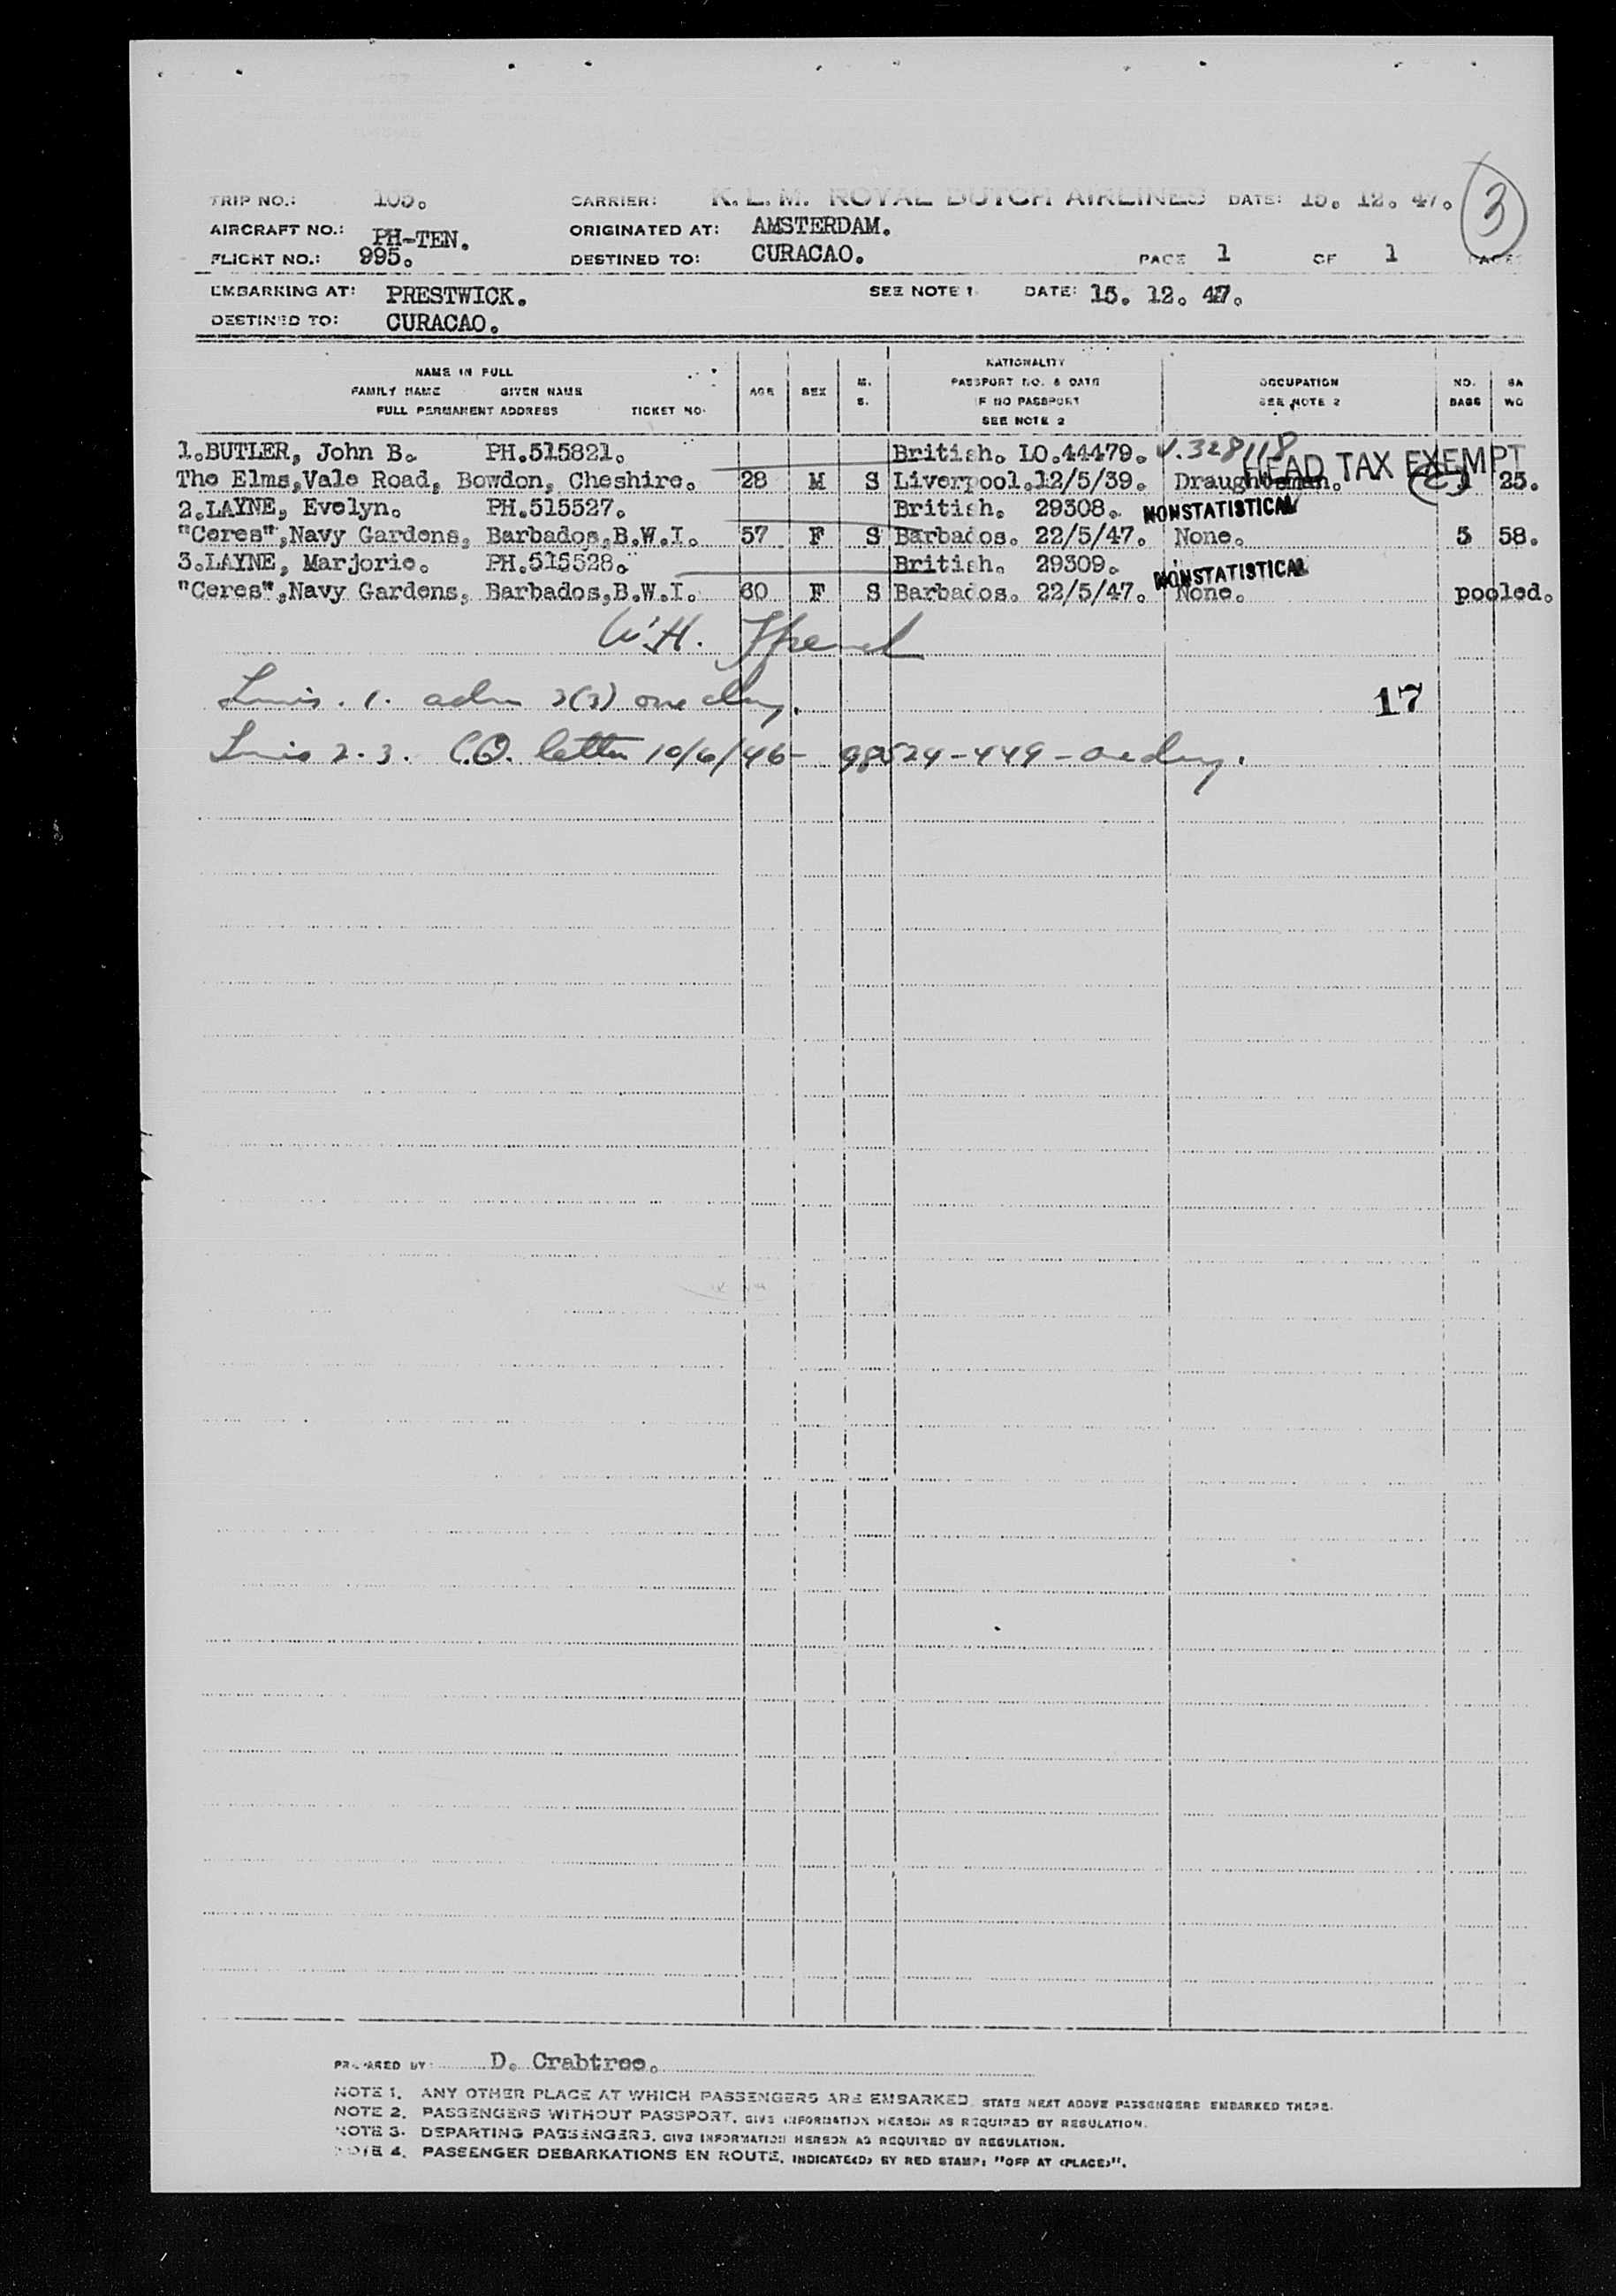 TRIP NO.: 105. CARRIER: K.L.M. ROYAL DUTCH AIRLINES DATE: 15. 12. 47. 3
AIRCRAFT NO.: PH-TEN. ORIGINATED AT: AMSTERDAM.
FLIGHT NO.: 995. DESTINED TO: CURACAO. PAGE 1 OF 1 PAGES
EMBARKING AT: PRESTWICK. SEE NOTE 1 DATE: 15. 12. 47.
DESTINED TO: CURACAO.
NAME IN FULL
FAMILY NAME GIVEN NAME
FULL PERMANENT ADDRESS TICKET NO.
AGE
SEX
M.
S.
NATIONALITY
PASSPORT NO. & DATE
IF NO PASSPORT
SEE NOTE 2
OCCUPATION
SEE NOTE 2
NO.
BAGS
BA
WG
1.BUTLER, John B. PH.515821. British. LO.44479. V.328118
HEAD TAX EXEMPT
The Elms,Vale Road, Bowdon, Cheshire. 28 M S Liverpool.12/5/39. Draughtsman. 1 25.
2.LAYNE, Evelyn. PH.515527. British. 29308. NONSTATISTICAL
"Ceres",Navy Gardens, Barbados,B.W.I. 57 F S Barbados. 22/5/47. None. 5 58.
3.LAYNE, Marjorie. PH.515528. British. 29309. NONSTATISTICAL
"Ceres",Navy Gardens, Barbados,B.W.I. 60 F S Barbados. 22/5/47. None. pooled.
W.H.
1. adm 3(3) one day. 17
2.3. C.O. letter 10/6/46- 98524-449-
PREPARED BY D. Crabtree.
NOTE 1. ANY OTHER PLACE AT WHICH PASSENGERS ARE EMBARKED, STATE NEXT ABOVE PASSENGERS EMBARKED THERE.
NOTE 2. PASSENGERS WITHOUT PASSPORT, GIVE INFORMATION HEREON AS REQUIRED BY REGULATION.
NOTE 3. DEPARTING PASSENGERS, GIVE INFORMATION HEREON AS REQUIRED BY REGULATION.
NOTE 4. PASSENGER DEBARKATIONS EN ROUTE, INDICATE(D) BY RED STAMP: "OFF AT (PLACE)".